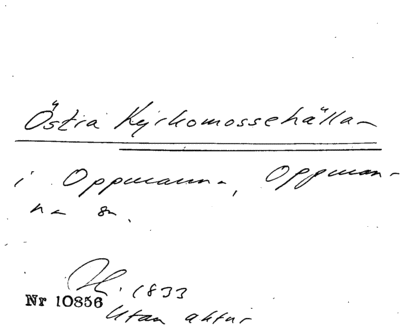 Östra Kyrkomossehälla-
i Oppmanna, Oppman-
na sn.
1833
Nr 10856
Utan aktnr